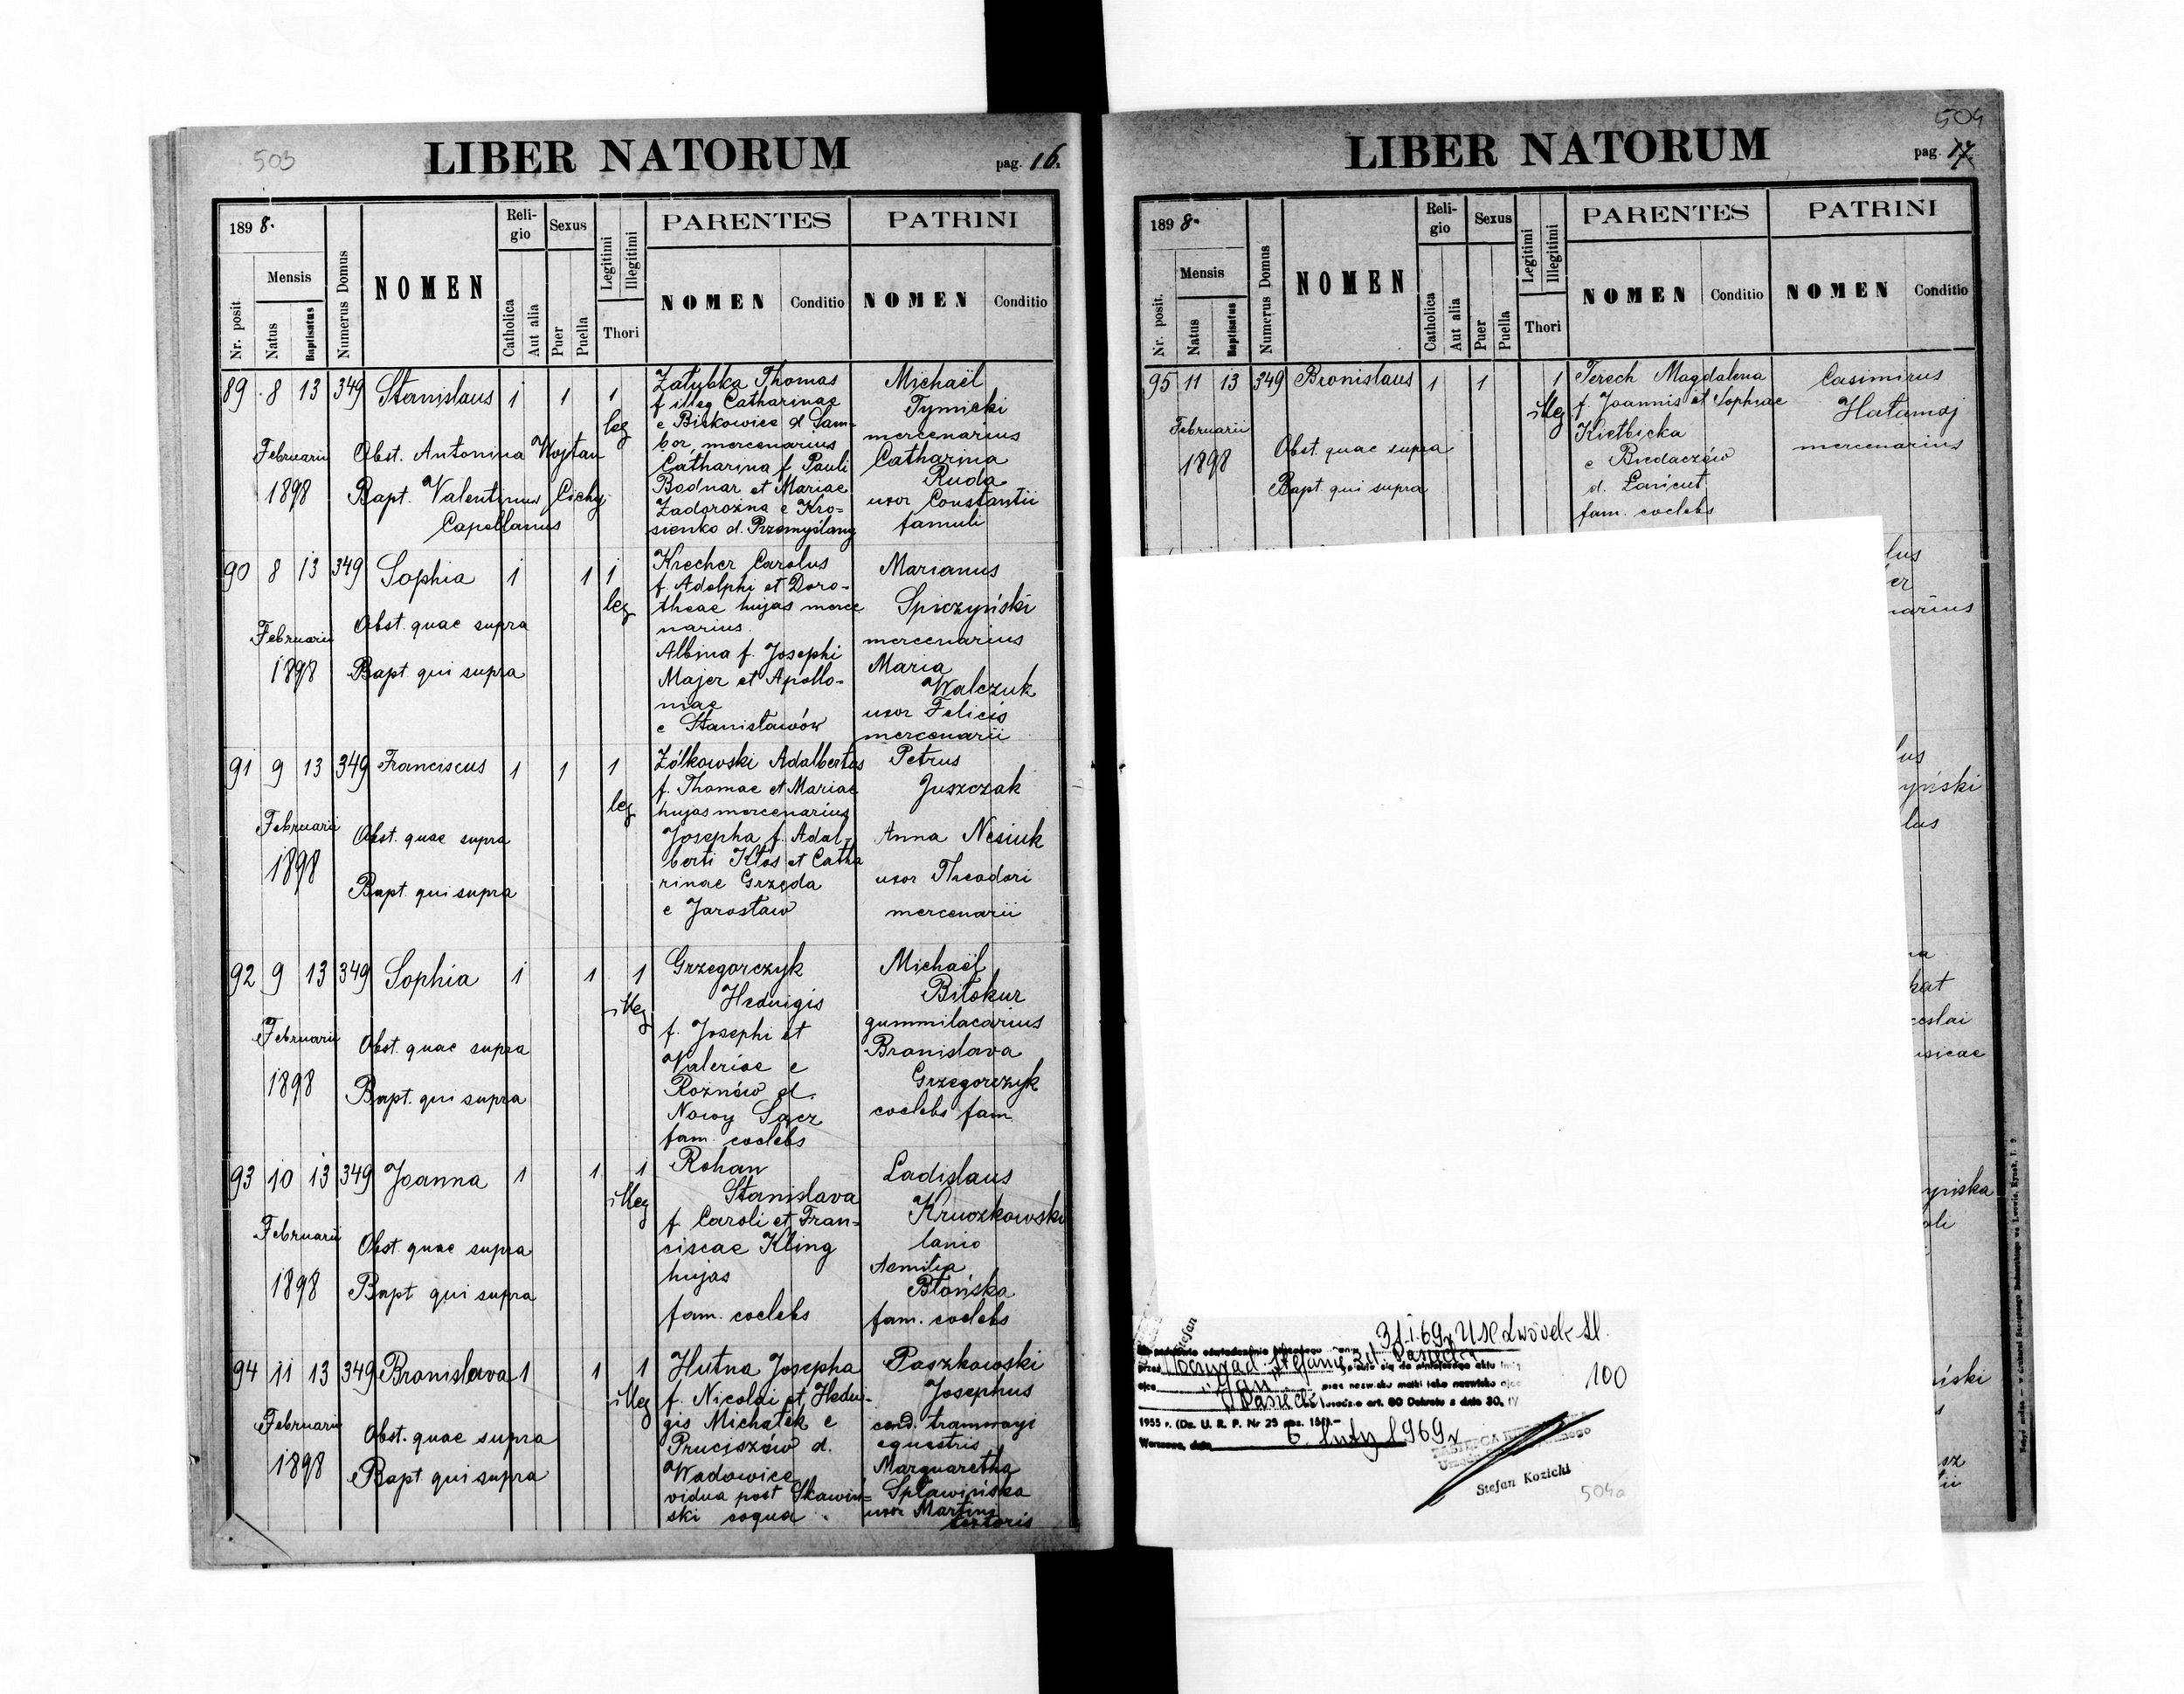 503
LIBER NATORUM
pag. 16.
1898.
Nr. posit
Mensis
Natus
Baptisatus
Numerus Domus
NOMEN
Religio
Catholica
Aut alia
Sexus
Puer
Puella
Legitimi
Illegitimi
Thori
PARENTES
NOMEN
Conditio
PATRINI
NOMEN
Conditio
89 8 13 349 Stanislaus 1 1 1
leg
Februarii
1898
Obst. Antonina Wojtan
Bapt. Valentinus Cichy
Capellanus
Załubka Thomas
f illeg Catharinae
e Biskowice d Sam-
bor, mercenarius
Catharina f. Pauli
Bodnar et Mariae
Zadorożna e Kro-
sienko d. Przemyślany
Michaël
Tymicki
mercenarius
Catharina
Ruda
uxor Constantii
famuli
90 8 13 349 Sophia 1 1 1
leg
Februarii
1898
Obst. quae supra
Bapt qui supra
Krecher Carolus
f. Adolphi et Doro-
theae hujas merce
narius.
Albina f. Josephi
Majer et Apollo-
niae
e Stanisławów
Marianus
Spiczyński
mercenarius
Maria
Walczuk
uxor Felicis
mercenarii
91 9 13 349 Franciscus 1 1 1
leg
Februarii
1898
Obst. quae supra
Bapt qui supra
Żółkowski Adalbertus
f. Thomae et Mariae
hujas mercenarius
Josepha f. Adal-
berti Kłos et Catha
rinae Grzęda
e Jarosław
Petrus
Juszczak
Anna Nesiuk
uxor Theodori
mercenarii
92 9 13 349 Sophia 1 1 1
illeg
Februarii
1898
Obst. quae supra
Bapt. qui supra
Grzegorczyk
Hedvigis
f. Josephi et
Valeriae e
Rożnów d.
Nowy Sącz
fam. coelebs
Michaël
Biłokur
gummilacarius
Bronislava
Grzegorczyk
coelebs fam.
93 10 13 349 Joanna 1 1 1
illeg
Februarii
1898
Obst. quae supra
Bapt qui supra
Rohan
Stanislava
f. Caroli et Fran-
ciscae Kling
hujas
fam. coelebs
Ladislaus
Kruczkowski
lanio
Aemilia
Błońska
fam. coelebs
94 11 13 349 Bronislava 1 1 1
illeg
Februarii
1898
Obst. quae supra
Bapt. qui supra
Hutna Josepha
f. Nicolai et Hedvi-
gis Michałek e
Pruciszów d.
Wadowice
vidua post Skawiń-
ski coqua
Paszkowski
Josephus
cond. tramwayi
equestris
Margaretha
Spławińska
uxor Martini
504
LIBER NATORUM
pag. 17.
1898.
Nr. posit.
Mensis
Natus
Baptisatus
Numerus Domus
NOMEN
Religio
Catholica
Aut alia
Sexus
Puer
Puella
Legitimi
Illegitimi
Thori
PARENTES
NOMEN
Conditio
PATRINI
NOMEN
Conditio
95 11 13 349 Bronislaus 1 1 1
illeg
Februarii
1898
Obst. quae supra
Bapt. qui supra
Terech Magdalena
f. Joannis et Sophiae
Kiełbicka
e Biedaczów
d. Łańcut
fam. coelebs
Casimirus
Hałamaj
mercenarius
lus
er
narius
lus
yński
lus
yńska
oli
ński
sz
31.I.69r USC Lwówek Śl.
100
art. 60 Dekretu z dnia 30. IV
1955 r. (Dz. U. R. P. Nr 25 poz. 151).—
Warszawa, dnia 6. luty 1969r
Stefan Kozicki
504a